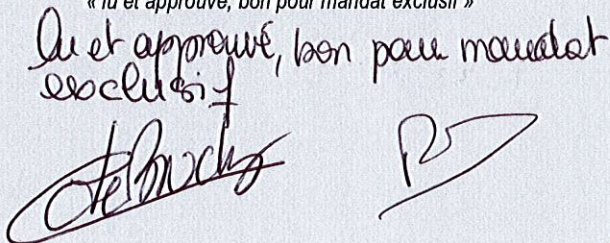 « lu et approuvé, bon pour mandat exclusif »
lu et approuvé, bon pour mandat
exclusif